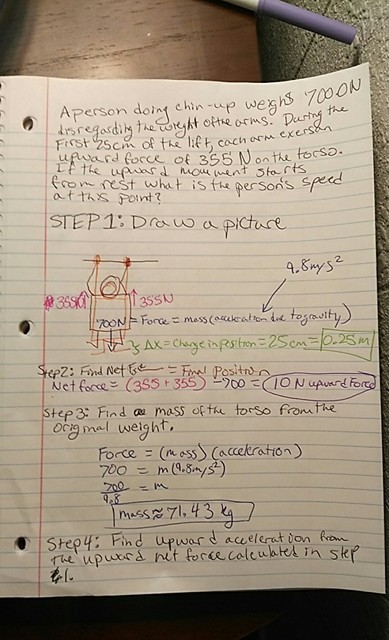 A person doing chin-up weighs 700.0N
disregarding the weight of the arms. During the
First 25cm of the lift, each arm exerts an
upward force of 355 N on the torso.
If the upward movement starts
from rest what is the person's speed
at this point?
STEP 1: Draw a picture
9.8m/s²
355N 355N
700N = Force = mass(acceleration due to gravity)
Δx = Change in position = 25cm = 0.25m
Step2: Find Net = Final Position
Net force = (355 + 355) - 700 = 10 N upward Force
Step 3: Find mass of the torso from the
original weight.
Force = (mass) (acceleration)
700 = m(9.8m/s²)
700 = m
9.8
mass ≈ 71.43 kg
Step 4: Find upward acceleration from
the upward net force calculated in step
1.